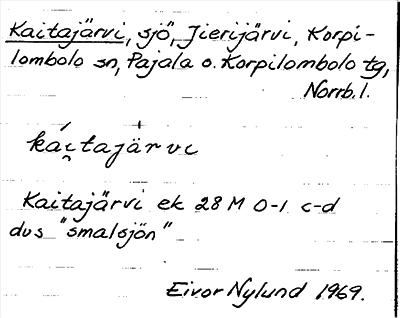 Kaitajärvi, sjö, Jierijärvi, Korpi-
lombolo sn, Pajala o. Korpilombolo tg,
Norrb. l.
káı̯tajä̀rvi
Kaitajärvi ek 28 M 0-1 c-d
dvs "smalsjön"
Eivor Nylund 1969.